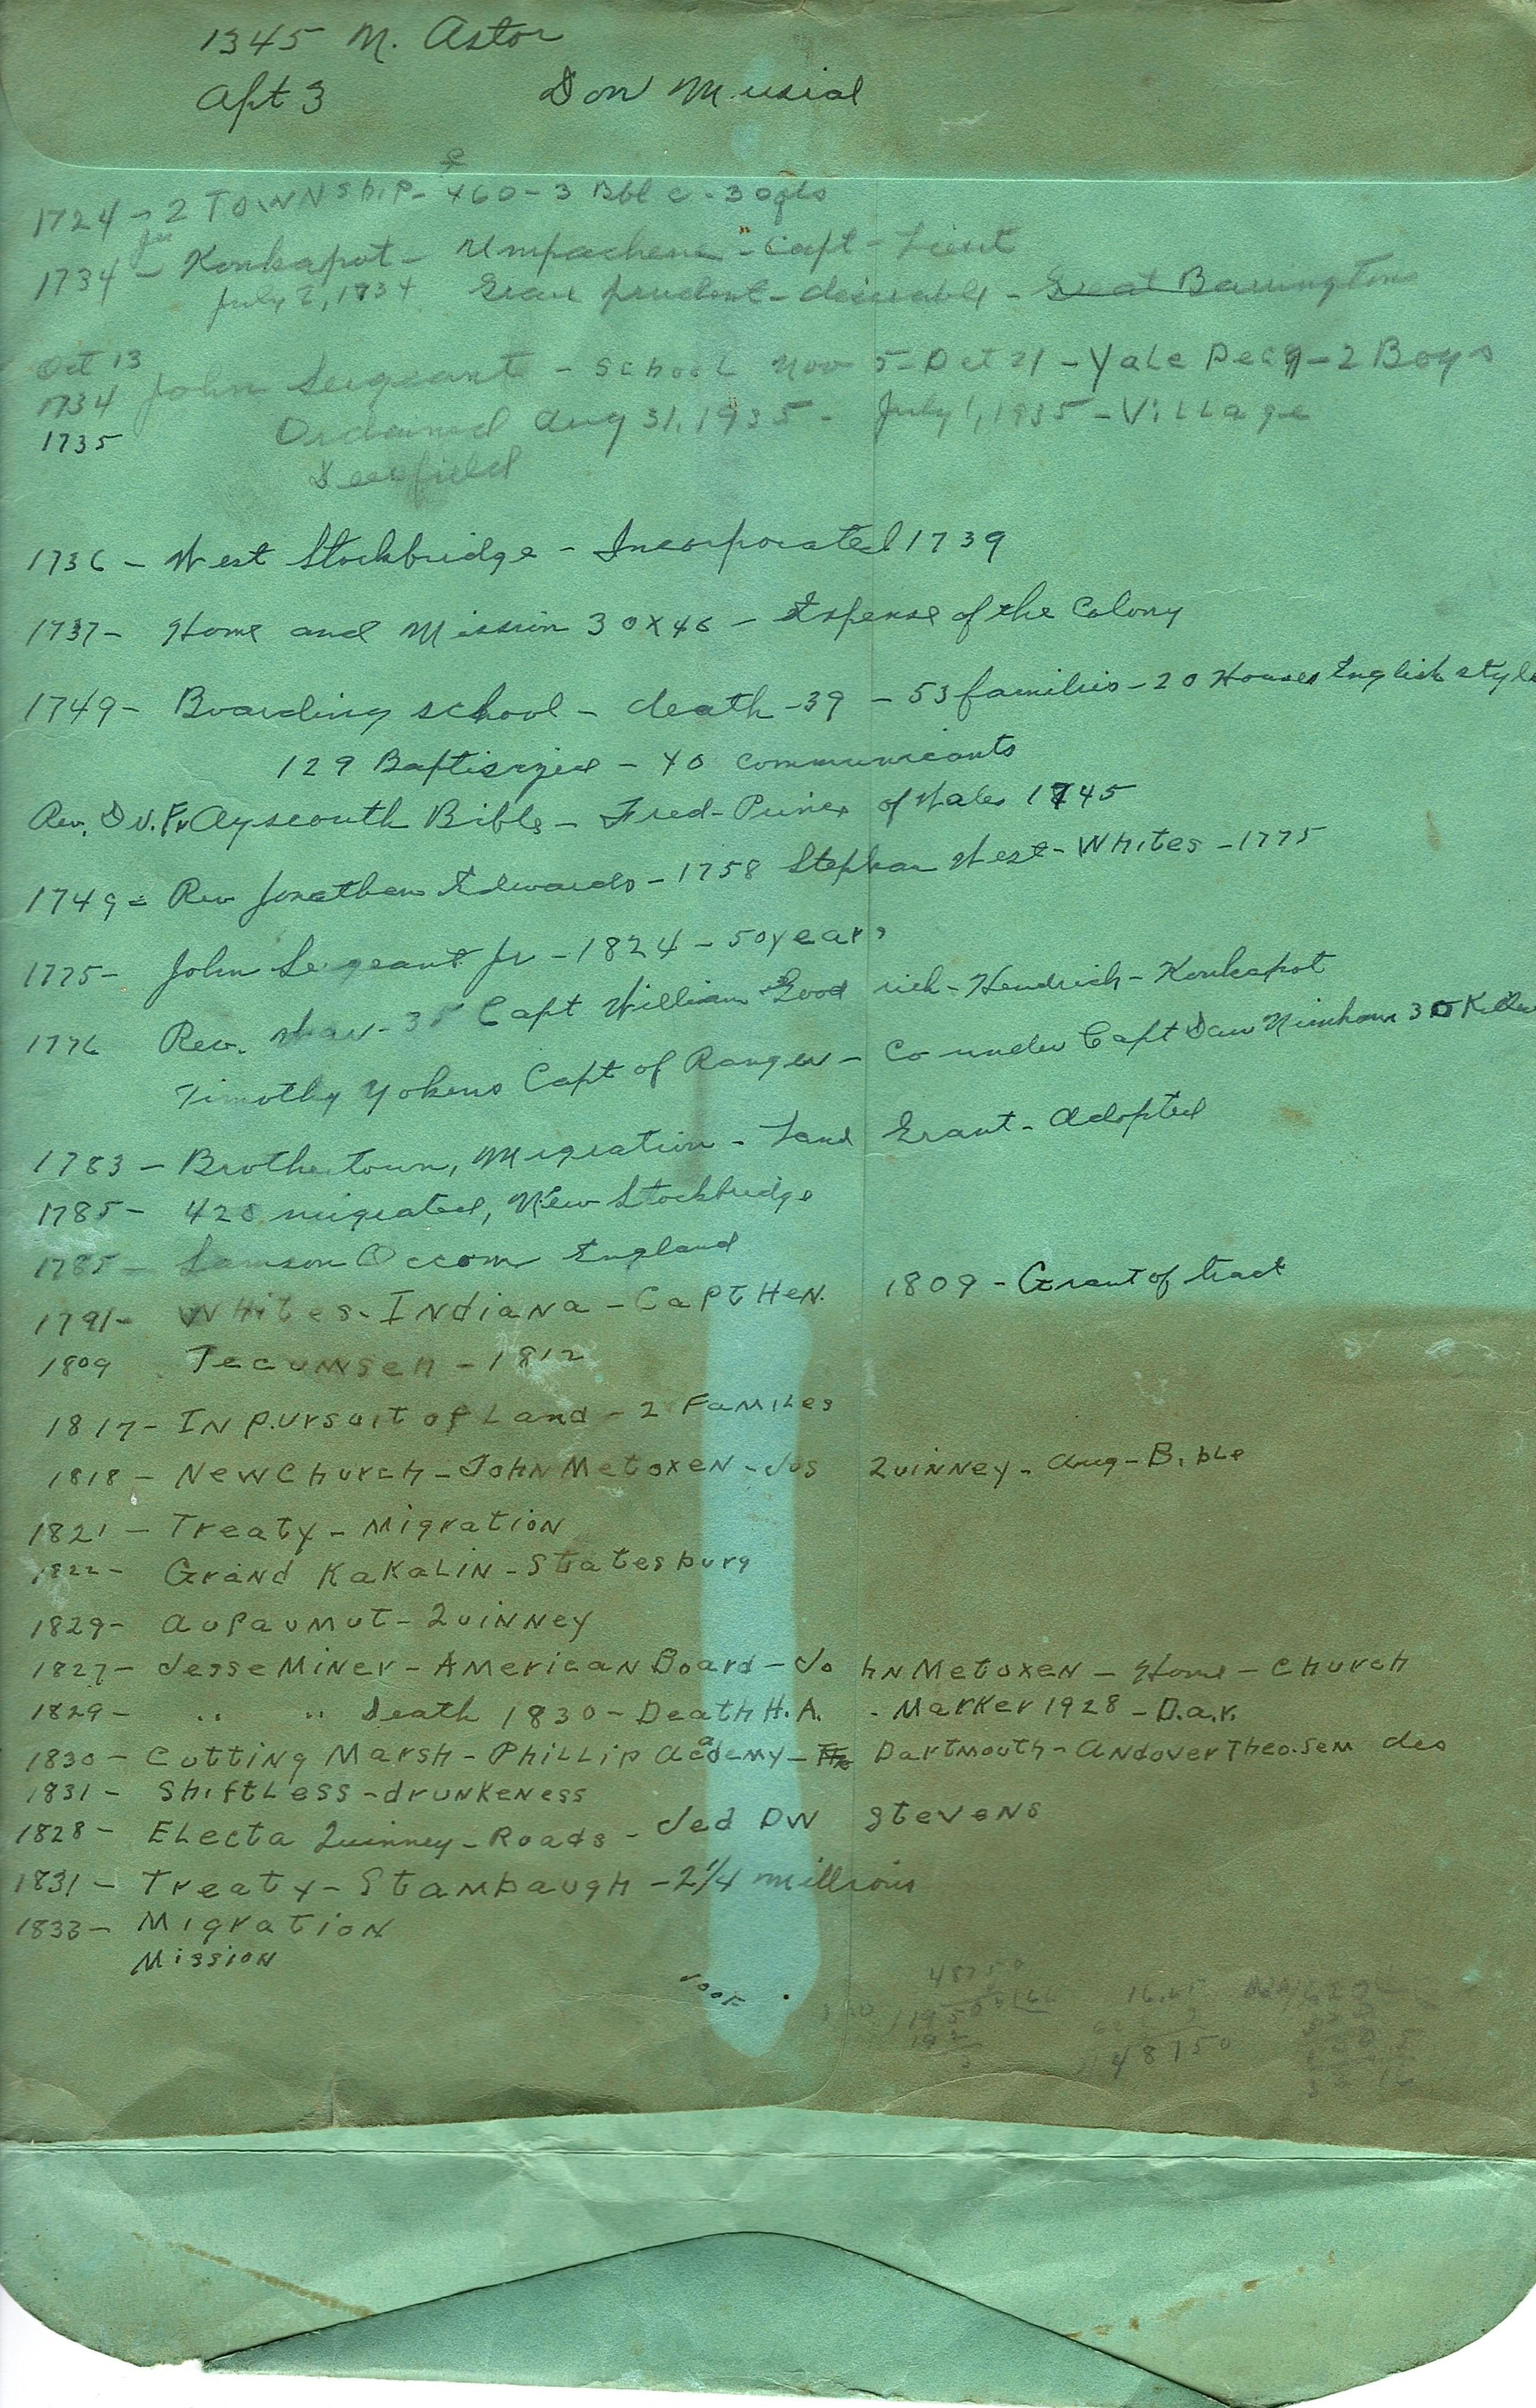 1345 N. Astor
Apt 3 Don Musial
1724 - 2 TOWNship - £ 460 - 3 Bbl c - 30 qts
1734 - Jan Konkapot - Umpachene - Capt - Lieut
July 2, 1734 Grave prudent - desirable - Great Barrington
Oct 13
1734 John Sergeant - School Nov 5 - Oct 21 - Yale Dec 9 - 2 Boys
1735 Ordained Aug 31, 1935 - July 1, 1935 - Village
Deerfield
1736 - West Stockbridge - Incorporated 1739
1737 - Home and Mission 30 x 46 - Expense of the Colony
1749 - Boarding school - death - 39 - 53 families - 20 Houses English style
129 Baptisized - 40 communicants
Rev. Dr. Fr Ayscouth Bible - Fred - Prince of Wales 1745
1749 = Rev Jonathan Edwards - 1758 Stephan West - Whites - 1775
1775 - John Sergeant Jr - 1824 - 50 years
1776 Rev. War - 35 Capt William Goodrich - Hendrich - Konkapot
Timothy Yokens Capt of Ranger - Co under Capt Dan Nimham 30 Killed
1783 - Brothertown, Migration - Land Grant - Adopted
1785 - 420 migrated, New Stockbridge
1785 - Samson Occom England
1791 - Whites - INdiaNa - Capt HeN. 1809 - Grant of tract
1809 Tecumseh - 1812
1817 - IN pursuit of Land - 2 FamiLes
1818 - New Church - JohN MetoxeN - Jos QuiNNey - Aug - Bible
1821 - Treaty - MigratioN
1822 - GraNd KaKaLiN - Statesburg
1829 - AuPaumut - QuiNNey
1827 - Jesse MiNer - AmericaN Board - JohN MetoxeN - Home - Church
1829 - " " Death 1830 - Death H.A. - Marker 1928 - D.a.r.
1830 - Cutting Marsh - PhiLLip Academy - The Dartmouth - Andover Theo. Sem des
1831 - ShiftLess - druNKeNess
1828 - ELecta Quinney - Roads - Jed DW SteveNs
1831 - Treaty - Stambaugh - 2 1/4 millions
1833 - MigratioN
MissioN
48750
16.25
3
48750